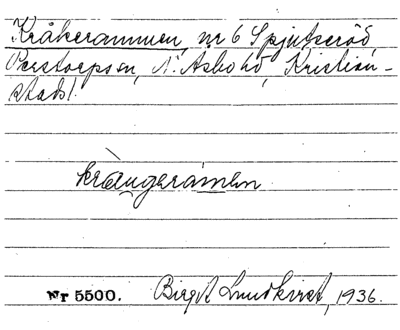 Kråkerammen, nr 6 Spjutseröd
Perstorps sn, N. Åsbo hd, Kristian-
stads l.
kràngeràmen
Nr 5500. Birgit Lundkvist, 1936.